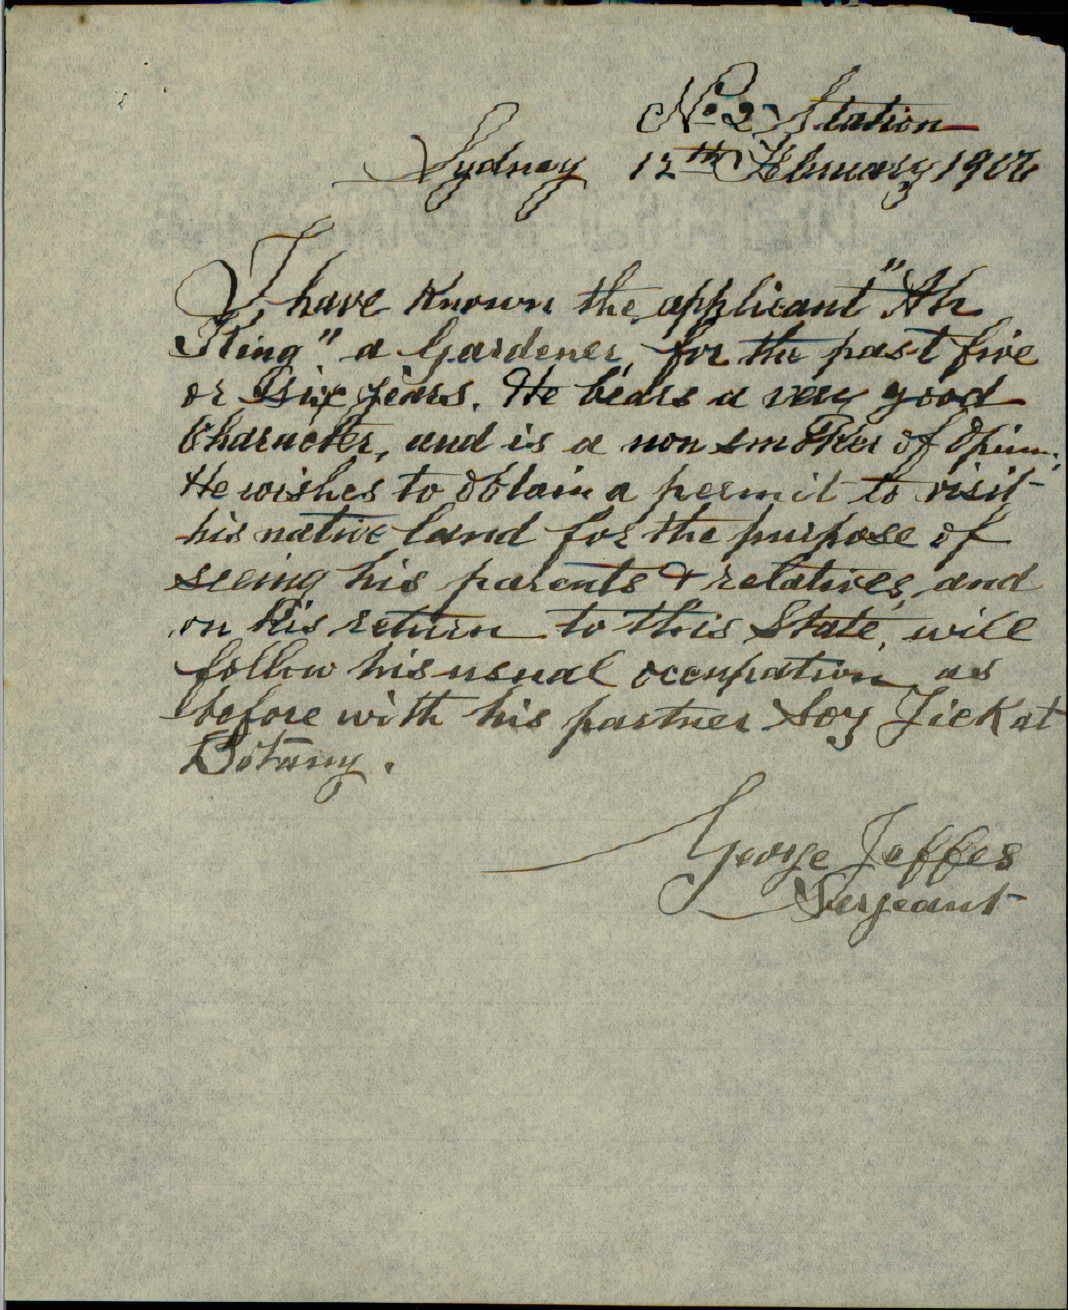 No. 2 Station
Sydney 12th February 1906
I have known the applicant "Ah
King" a Gardener, for the past five
or six years. He bears a very good
Character, and is a non smoker of Opium.
He wishes to obtain a permit to visit
his native land for the purpose of
seeing his parents & relatives, and
on his return to this State, will
follow his usual occupation as
before with his partner Soy Jick at
Botany.
George Jeffes
Sergeant